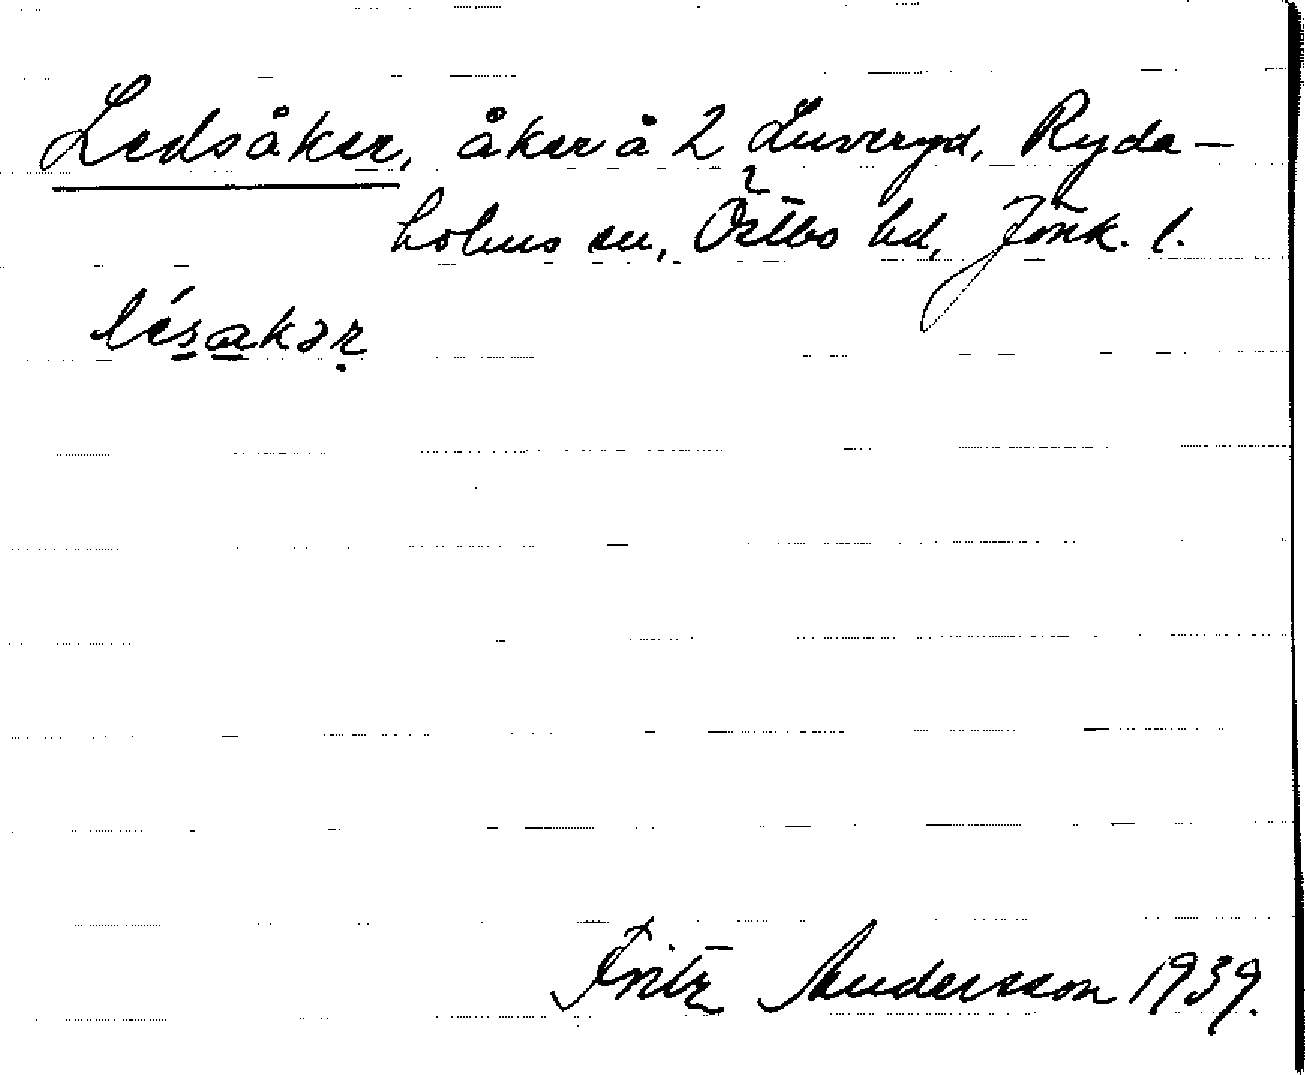 Ledsåker, åker å 2 Luveryd, Ryda-
holms sn, Östbo hd, Jönk. l.
lésakər
Fritz Andersson 1939.